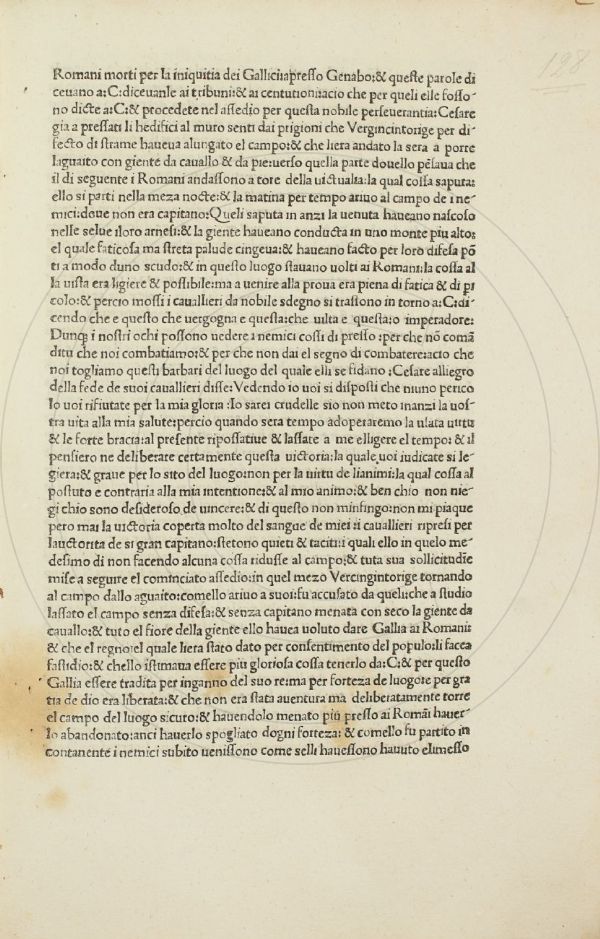 128
Romani morti per la iniquitia dei Gallici apresso Genabo:& queste parole di
ceuano a:C:diceuanle ai tribuni:& ai centurioni acio che per queli elle fosso/
no dicte a:C:& procedete nel assedio per questa nobile perseuerantia:Cesare
gia apressati li hedifici al muro senti dai prigioni che Vergincintorige per di/
fecto di strame haueua alungato el campo:& che liera andato la sera a porre
laguaito con giente da cauallo & da pie:uerso quella parte douello pēsaua che
il di seguente i Romani andassono a tore della uictualia:la qual cossa saputa:
ello si parti nella meza nocte:& la matina per tempo ariuo al campo de i ne/
mici:doue non era capitano:Queli saputa in anzi la uenuta haueano nascoso
nelle selue iloro arnesi:& la giente haueano conducta in uno monte piu alto:
el quale faticosa ma streta palude cingeua:& haueano facto per loro difesa pō
ti a modo duno scudo:& in questo luogo stauano uolti ai Romani:la cossa al
la uista era ligiere & possibile:ma a uenire alla proua era piena di fatica & di pi
colo:& percio mossi i cauallieri da nobile sdegno si trassono in torno a:C:di/
cendo che e questo che uergogna e questa:che uilta e questa:o imperadore:
Dunq; i nostri ochi possono uedere i nemici cossi di presso :per che nō comā
ditu che noi combatiamo:& per che non dai el segno di combatere:acio che
noi togliamo questi barbari del luogo del quale elli se fidano :Cesare alliegro
della fede de suoi cauallieri disse:Vedendo io uoi si disposti che niuno perico
lo uoi rifiutate per la mia gloria :Io sarei crudelle sio non meto inanzi la uos/
tra uita alla mia salute:percio quando sera tempo adoperaremo la usata uirtu
& le forte bracia:al presente ripossatiue & lassate a me elligere el tempo:& il
pensiero ne deliberare certamente questa uictoria:la quale uoi iudicate si le/
giera:& graue per lo sito del luogo:non per la uirtu de lianimi:la qual cossa al
postuto e contraria alla mia intentione:& al mio animo:& ben chio non nie/
gi chio sono desideroso de uincere:& di questo non minfingo:non mi piaque
pero mai la uictoria coperta molto del sangue de miei :i cauallieri ripresi per
lauctorita de si gran capitano:stetono quieti & taciti:i quali ello in quelo me/
desimo di non facendo alcuna cossa ridusse al campo:& tuta sua sollicitudīe
mise a seguire el cominciato assedio:in quel mezo Vercingintorige tornando
al campo dallo aguaito:comello ariuo a suoi:fu accusato da queli:che a studio
lassato el campo senza difesa:& senza capitano menata con seco la giente da
cauallo:& tuto el fiore della giente ello hauea uoluto dare Gallia ai Romani:
& che el regno:el quale liera stato dato per consentimento del populo:li facea
fastidio:& chello istimaua essere piu gloriosa cossa tenerlo da:C:& per questo
Gallia essere tradita per inganno del suo re:ma per forteza de luogo:e per gra
tia de dio era liberata:& che non era stata auentura ma deliberatamente torre
el campo del luogo sicuro:& hauendolo menato piu presso ai Romāi hauer/
lo abandonato:anci hauerlo spogliato dogni forteza: & comello fu partito in
contanente i nemici subito uenissono come selli hauessono hauuto elmesso